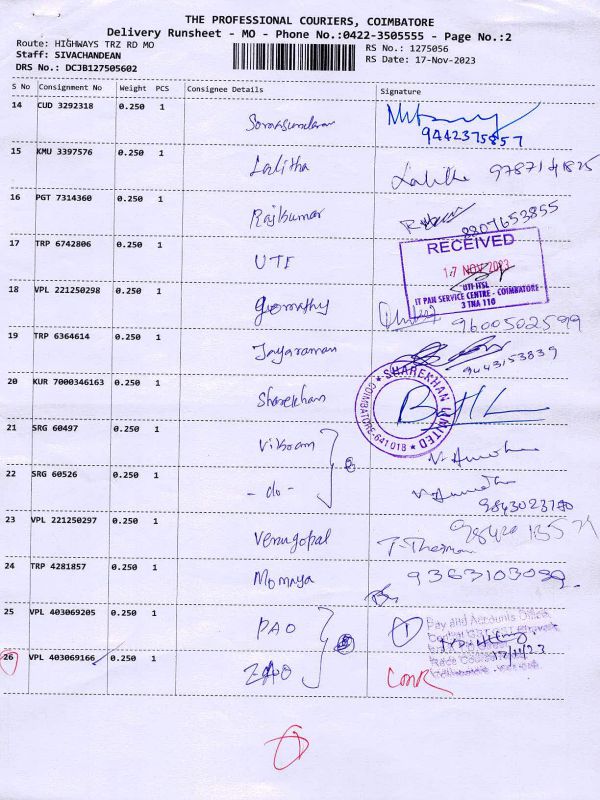 THE PROFESSIONAL COURIERS, COIMBATORE
Delivery Runsheet - MO - Phone No.:0422-3505555 - Page No.:2
Route: HIGHWAYS TRZ RD MO
RS No.: 1275056
Staff: SIVACHANDEAN
RS Date: 17-Nov-2023
DRS No.: DCJB127505602
S No Consignment No Weight PCS Consignee Details Signature
14 CUD 3292318 0.250 1
9442375857
15 KMU 3397576 0.250 1 Lalitha Lalitha
16 PGT 7314360 0.250 1 Rajkumar 8807653855
17 TRP 6742806 0.250 1 UTI
RECEIVED
17 NOV 2023
UTI ITSL
IT PAN SERVICE CENTRE - COIMBATORE
3 TNA 110
18 VPL 221250298 0.250 1 gomathy 9600502599
19 TRP 6364614 0.250 1 Jayaraman 9443153839
20 KUR 7000346163 0.250 1 Sharekhan
SHAREKHAN LIMITED
COIMBATORE-641 018
21 SRG 60497 0.250 1 Vikram
22 SRG 60526 0.250 1 - do -
23 VPL 221250297 0.250 1 Venugopal
24 TRP 4281857 0.250 1
25 VPL 403069205 0.250 1 PAO 1
Pay and Accounts Office
17/11/23
26 VPL 403069166 0.250 1